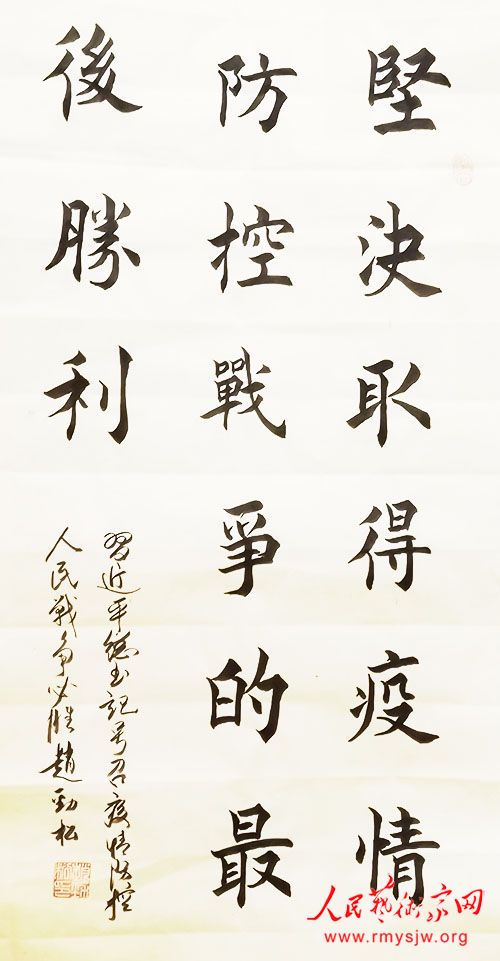 堅決取得疫情
防控戰爭的最
後勝利
习近平总书记号召疫情防控
人民战争必胜趙勁松
人民藝術家网
www.rmysjw.org